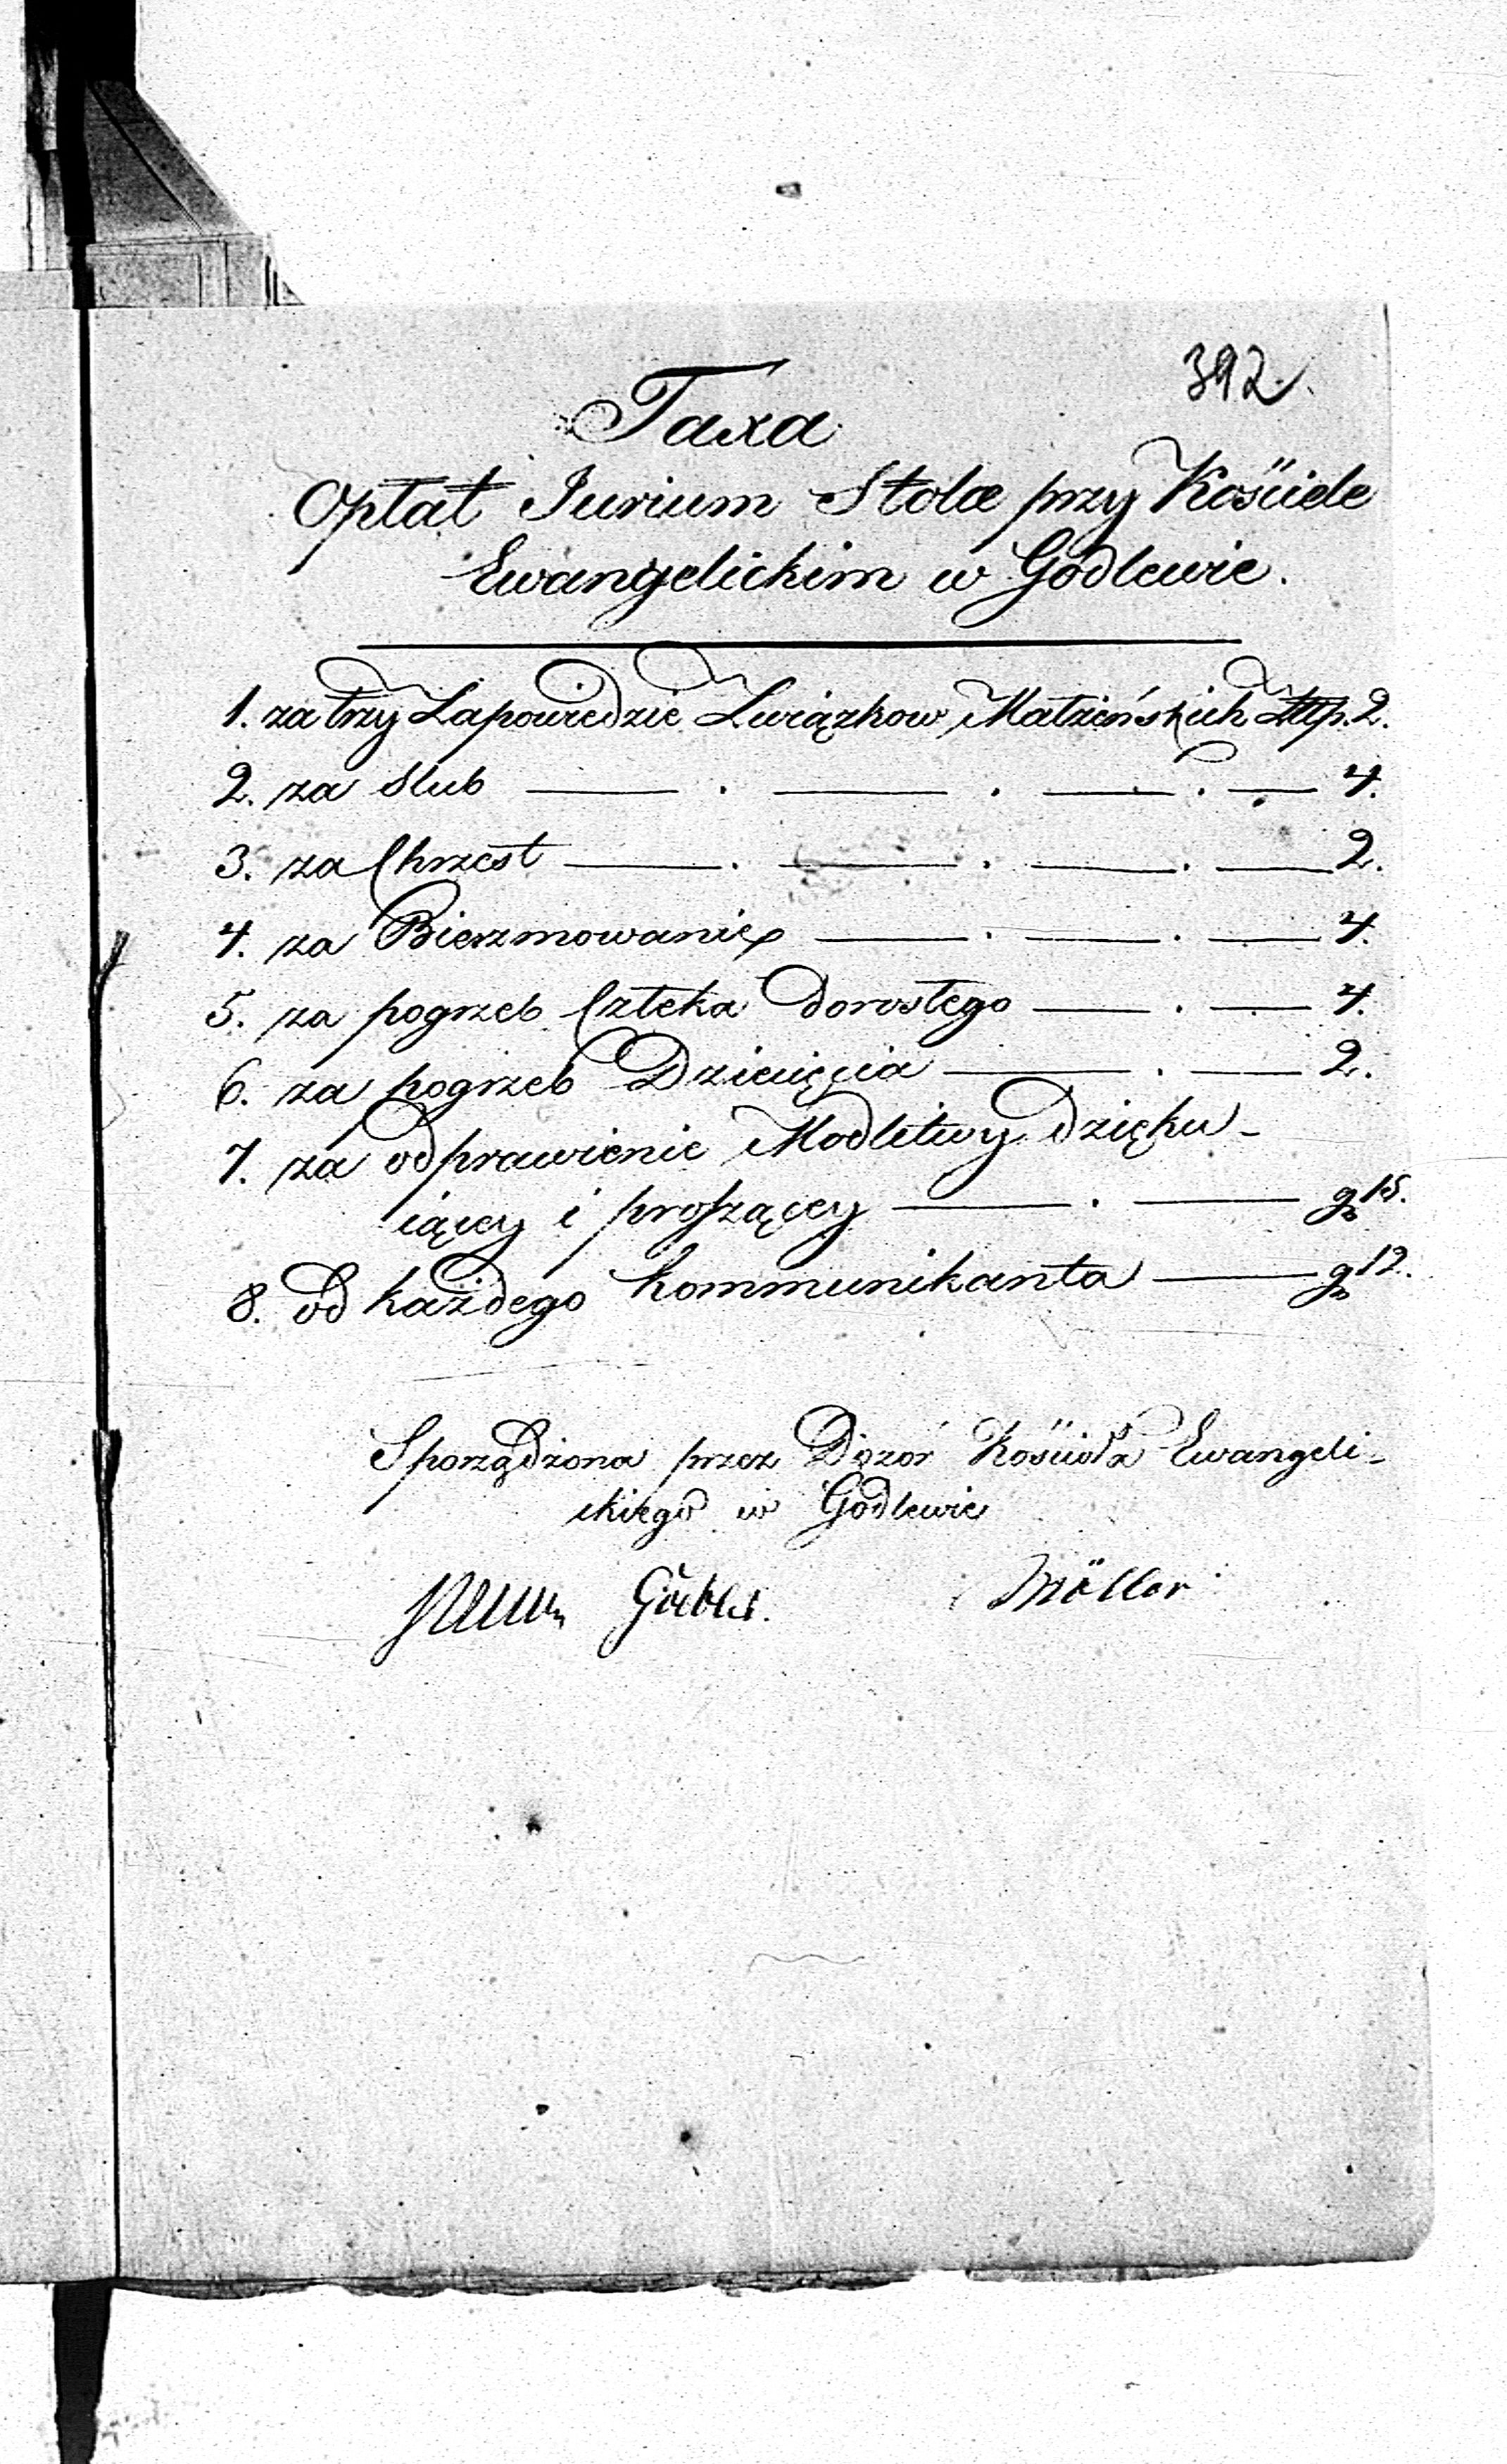 392.
Taxa
Opłat Jurium Stolæ przy Kościele
Ewangelickim w Godlewie.
1. za trzy Zapowiedzie Związkow Małżeńskich Złłp. 2.
2. za Slub — . — . — . — 4.
3. za Chrzest — . — . — . — 2.
4. za Bierzmowanie — . — . — 4.
5. za pogrzeb Człeka dorosłego — . — 4.
6. za pogrzeb Dziecięcia — . — 2.
7. za odprawienie Modlitwy dzięku-
iący i proszący — . — gr 15.
8. od każdego kommunikanta — gr 12.
Sporządzona przez Dozór Kościoła Ewangeli-
ckiego w Godlewie
Möller